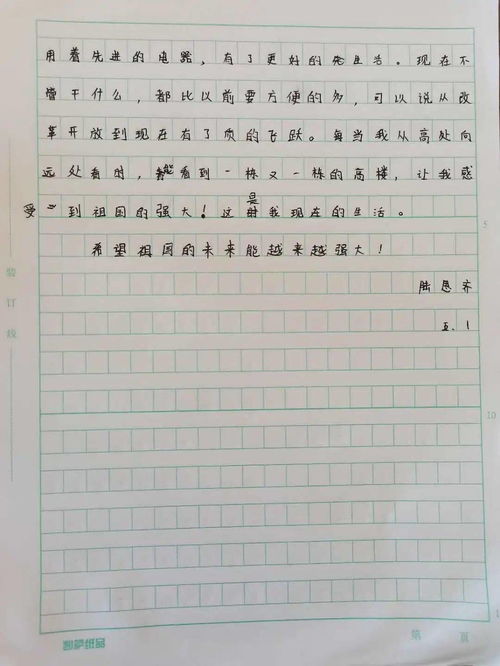 用着先进的电器，有了更好的生活。现在不
管干什么，都比以前要方便的多，可以说从改
革开放到现在有了质的飞跃。每当我从高处向
远处看时，能看到一栋又一栋的高楼，让我感
受到祖国的强大！这是我现在的生活。
希望祖国的未来能越来越强大！
陆思齐
五.1
5
装订线
10
凯萨纸品
第 页